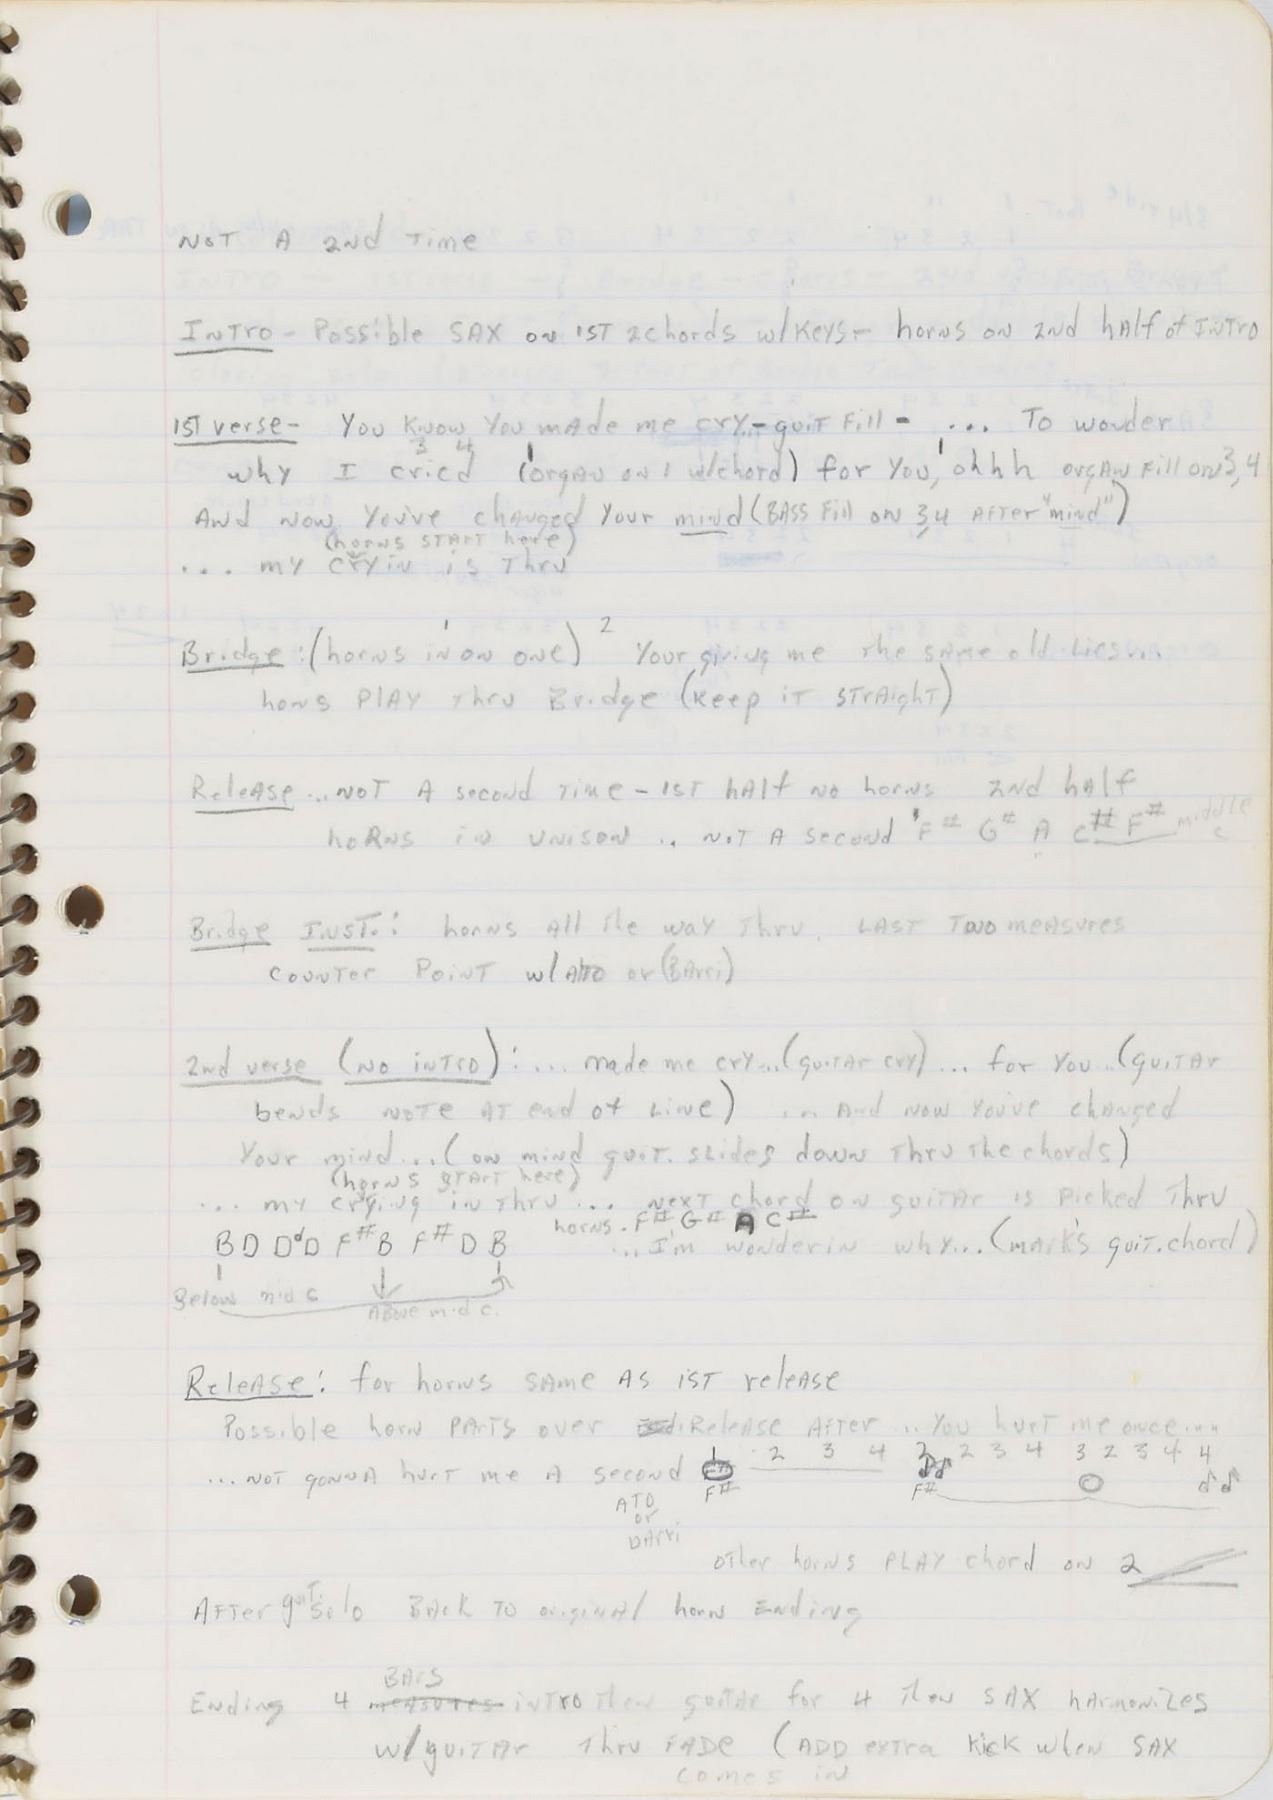 NOT A 2nd TIME
INTRO - Possible SAX on 1ST 2chords w/Keys - horns on 2nd hAlf of INTRO
1ST verse - You Know You made me cry - guit Fill - ... To wonder
3 4
why I cried (organ on 1 w/chord) for You, ohhh organ Fill on 3,4
And now You've changed Your mind (BASS Fill on 3,4 AFTER "mind")
(horns START here)
... my cryin is Thru
Bridge : (horns in on one) 2 Your giving me The same old Lies...
horns PLAY Thru Bridge (Keep iT STrAighT)
Release ... NOT A second Time - 1ST hAlf no horns 2nd hAlf
hoRns in unison .. NOT A second F# G# A C# F# middle
C
Bridge INST. : horns All The way Thru. LAST Two measures
counter POINT w/Alto or (BArri)
2nd verse (NO INTRO) : ... made me cry... (guitar cry) ... for You.. (guiTAr
bends NOTE AT end of Line) ... And now You've changed
Your mind... (on mind guit. slides down Thru The chords)
(horns START here)
... my crying in Thru ... NexT chord on guitar is Picked Thru
horns. F# G# A C#
B D D D F# B F# D B ... I'm wonderin why... (mark's guit. chord)
Below mid c
Above mid c.
Release : for horns same As 1ST release
Possible horn PArTs over Release AfTer ... You hurt me once ....
1 2 3 4 2 2 3 4 3 2 3 4 4
... NOT gonna hurT me A second F# F#
ATO
or
BArri
other horns PLAY chord on 2
After guit. Solo BAck TO original horn Ending
BArs
Ending 4 measures intro Then guitar for 4 Then SAX hArmonizes
w/guiTAr Thru FADE (ADD extra Kick when SAX
comes in